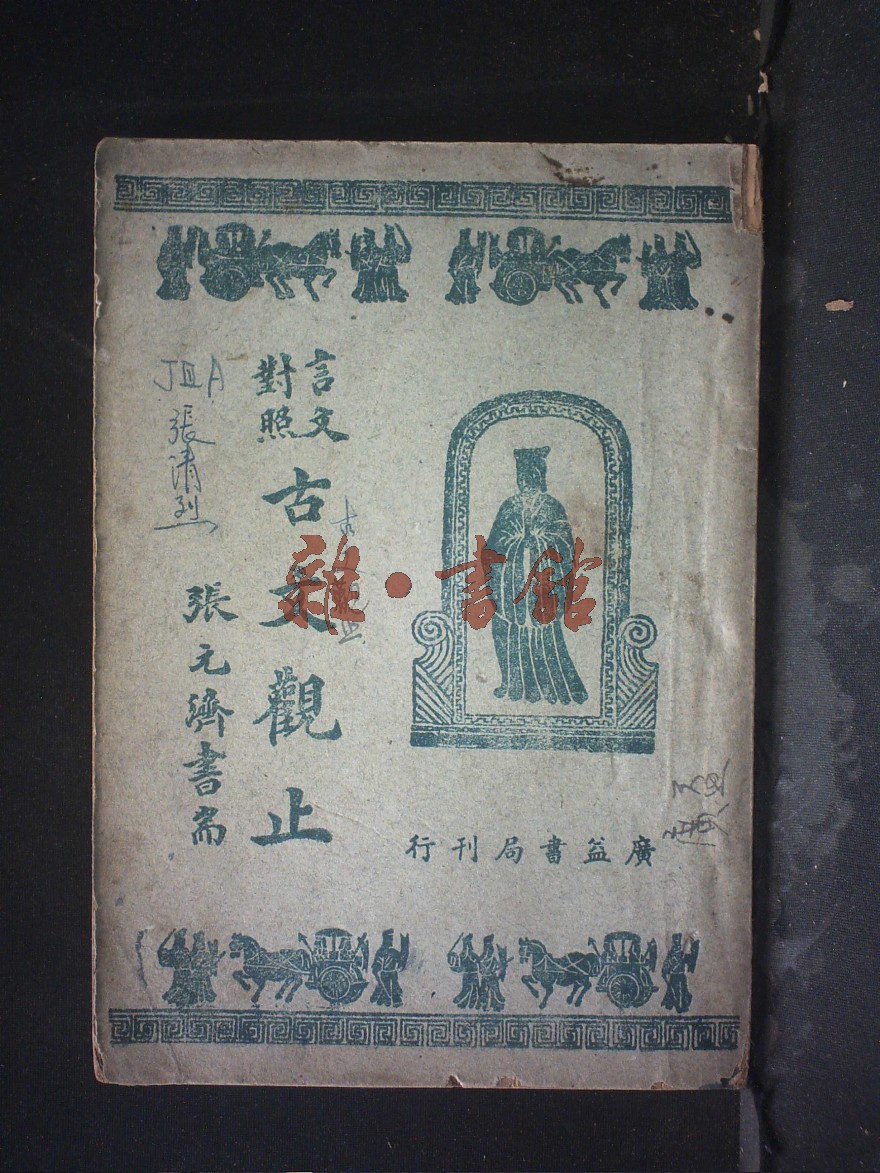 言文
對照
古文觀止
張元濟書耑
廣益書局刊行
JIIA
張清烈
雜·書館